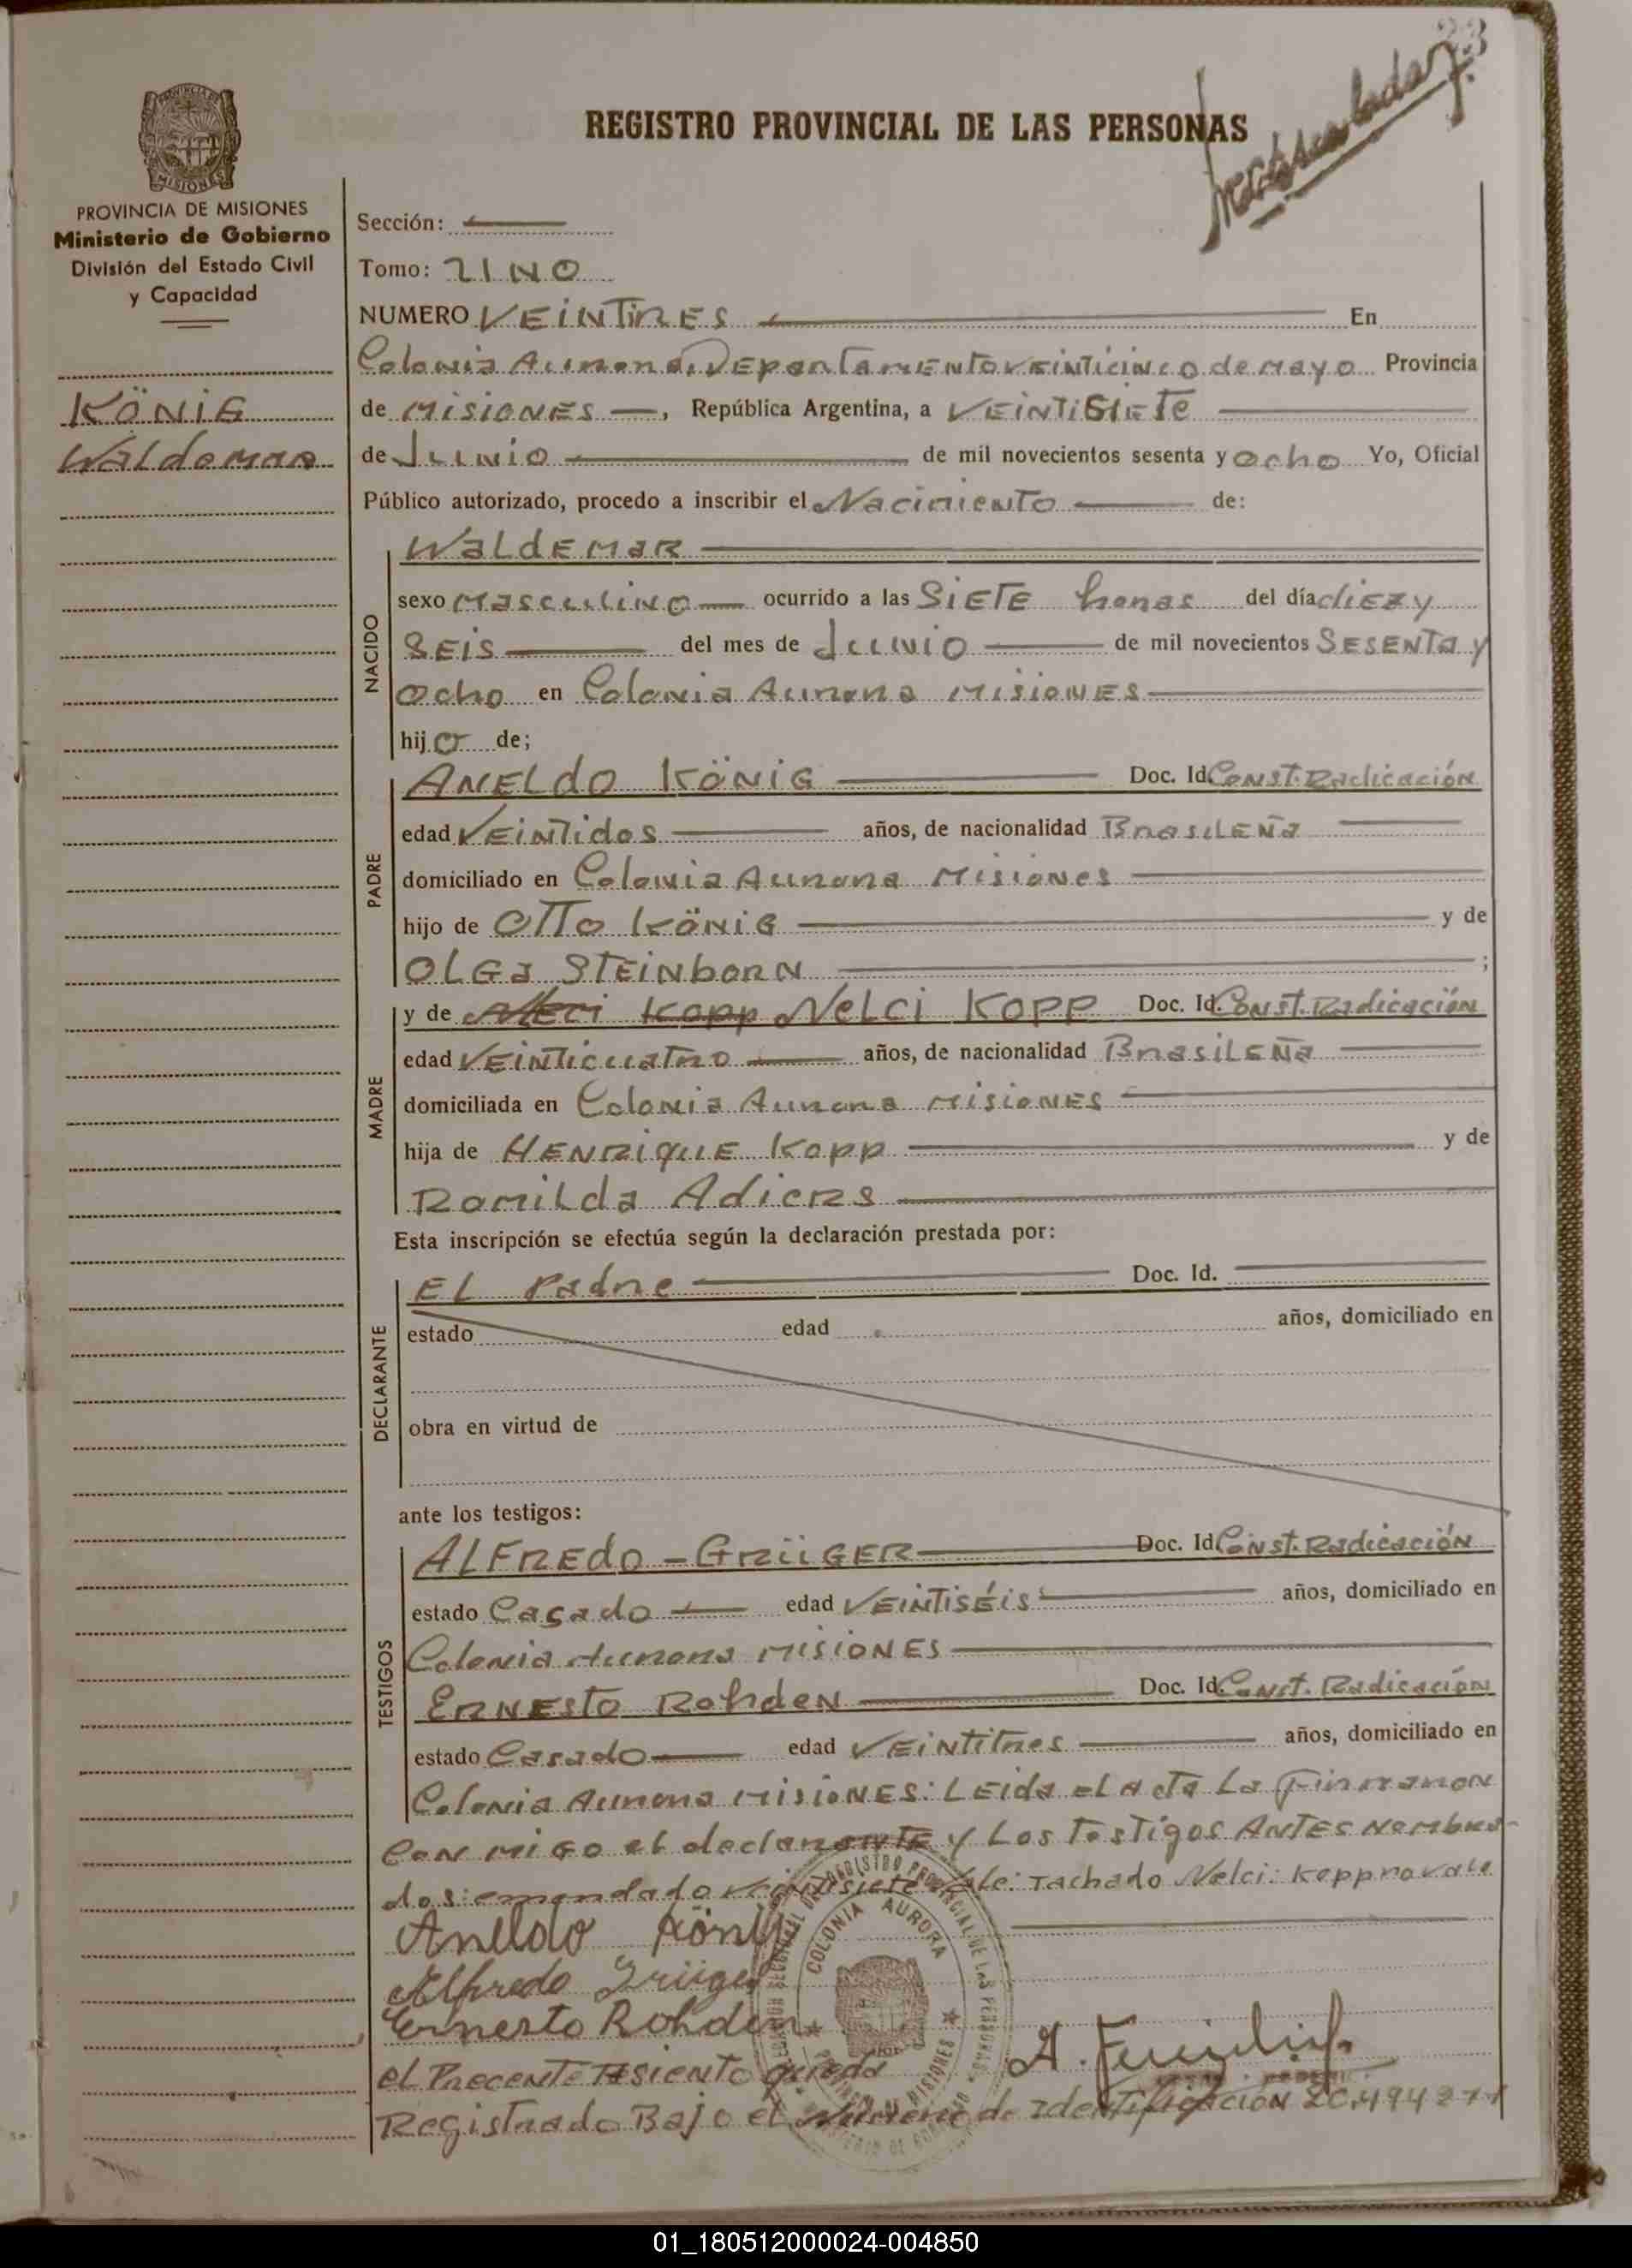 23
REGISTRO PROVINCIAL DE LAS PERSONAS
PROVINCIA DE MISIONES
Ministerio de Gobierno
División del Estado Civil
y Capacidad
KÖNIG
Waldemar
Sección:
Tomo: UNO
NUMERO VEINTIRES En
Colonia Aurora, Departamento Veinticinco de Mayo Provincia
de Misiones, República Argentina, a VEINTISIETE
de Junio de mil novecientos sesenta y ocho Yo, Oficial
Público autorizado, procedo a inscribir el Nacimiento de:
NACIDO
WALDEMAR
sexo Masculino ocurrido a las SIETE horas del día diez y
SEIS del mes de Junio de mil novecientos SESENTA y
ocho en Colonia Aurora Misiones
hijo de;
PADRE
ARELDO KÖNIG Doc. Id. Const. Radicación
edad VEINTIDOS años, de nacionalidad Brasileña
domiciliado en Colonia Aurora Misiones
hijo de OTTO KÖNIG y de
OLGA STEINBORN ;
MADRE
y de Neci Kopp NELCI KOPP Doc. Id. Const. Radicación
edad VEINTICUATRO años, de nacionalidad Brasileña
domiciliada en Colonia Aurora Misiones
hija de HENRIQUE Kopp y de
Romilda Adiers
Esta inscripción se efectúa según la declaración prestada por:
DECLARANTE
EL Padre Doc. Id.
estado edad años, domiciliado en
obra en virtud de
ante los testigos:
TESTIGOS
ALFREDO - GRÜGER Doc. Id. Const. Radicación
estado Casado edad VEINTISÉIS años, domiciliado en
Colonia Aurora MISIONES
ERNESTO Rohden Doc. Id. Const. Radicación
estado Casado edad VEINTITRES años, domiciliado en
Colonia Aurora MISIONES: LEIDA el Acta La Firmaron
Con migo el declarante y Los Testigos ANTES Nombra-
dos: emendado veintisiete Vale: Tachado Nelci: Kopp no vale
Areldo König
Alfredo Grüger
Ernesto Rohden
COLONIA AURORA
el Precente Asiento queda
Registrado Bajo el Número de Identificación 20.494271
01_180512000024-004850